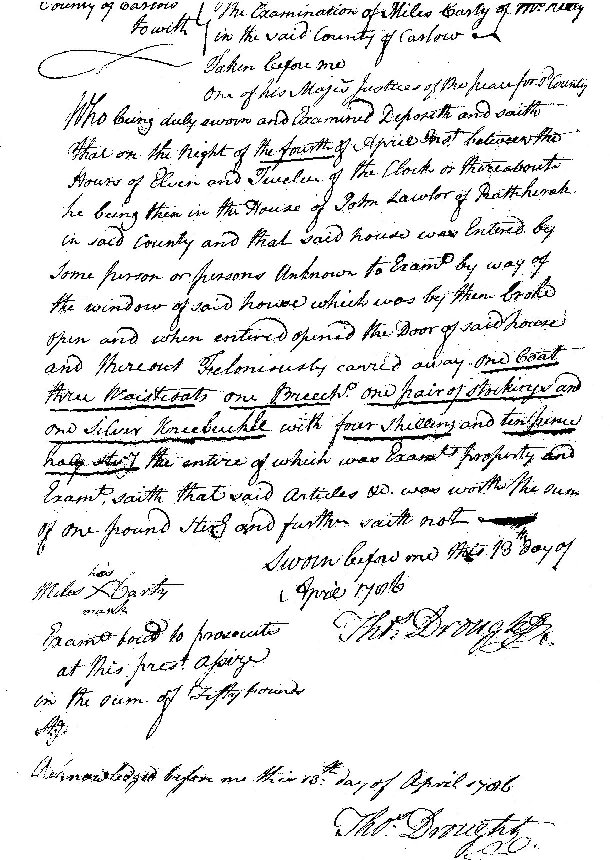 County of Carlow
to wit
The Examination of Miles Carty of
in the said County of Carlow
Taken before me
one of his Majs Justices of the peace for sd County
Who being duly sworn and Examined Deposeth and saith
that on the Night of the fourth of April Inst between the
Hours of Eleven and Twelve of the Clock or thereabouts
he being then in the House of John Lawlor of Rathkerah
in said County and that said house was Entered by
some person or persons Unknown to Examt by way of
the window of said house which was by them broke
open and when entered opened the Door of said house
and thereout Feloniously carried away one Coat
three Waistcoats one Breechs one pair of stockings and
one Silver Kneebuckle with four shillings and ten pence
half sterg the entire of which was Examts property and
Examt saith that said Articles &c. was worth the sum
of one pound sterg and further saith not
Sworn before me this 13th day of
April 1786
his
Miles X Carty
mark
Thos Drought
Examt bound to prosecute
at this prest Assize
in the sum of Fifty pounds
Stg
Acknowledged before me this 13th day of April 1786
Thos Drought